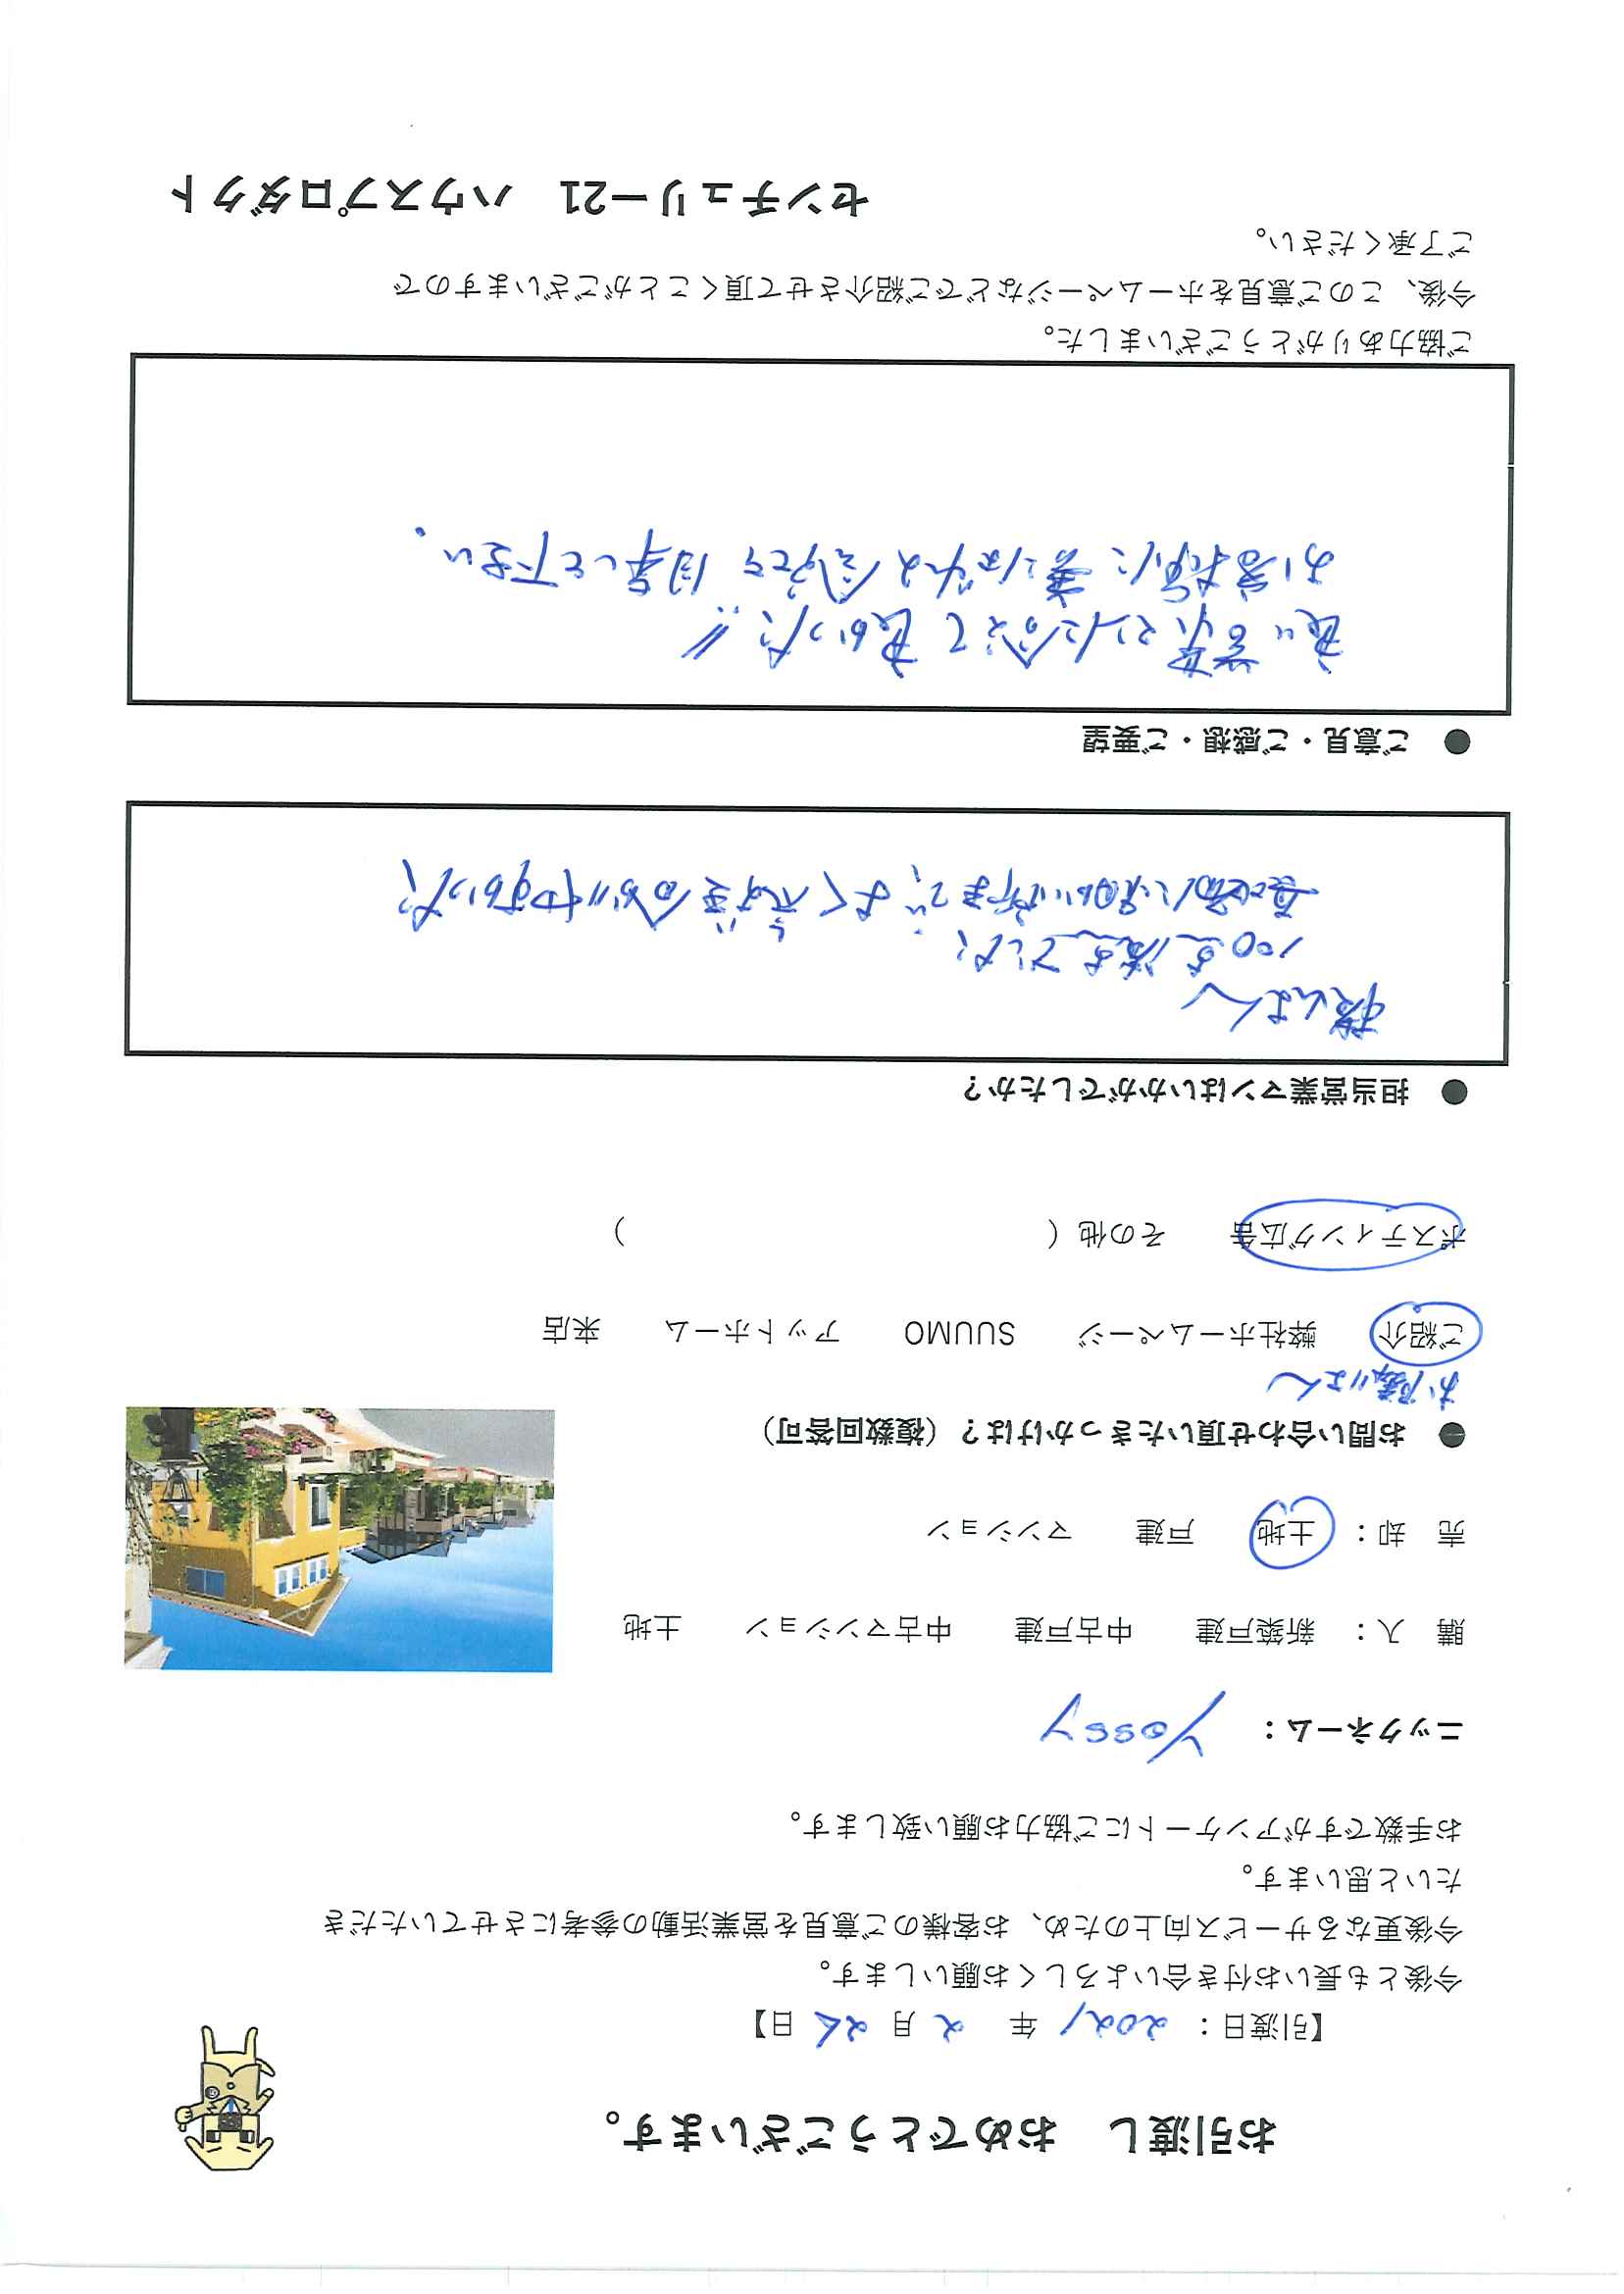 お引渡し　おめでとうございます。
【引渡日： 2021 年 2 月 26 日】
今後とも長いお付き合いよろしくお願いします。
今後更なるサービス向上のため、お客様のご意見を営業活動の参考にさせていただき
たいと思います。
お手数ですがアンケートにご協力お願い致します。
ニックネーム： Yossy
購　入： 新築戸建　中古戸建　中古マンション　土地
売　却： 土地　戸建　マンション
● お問い合わせ頂いたきっかけは？（複数回答可）
お隣りさん
ご紹介　弊社ホームページ　SUUMO　アットホーム　来店
ポスティング広告　その他（　　　）
● 担当営業マンはいかがでしたか？
さん
100点満点でした
所まで、よく 分かりやすかった
● ご意見・ご感想・ご要望
良い営業マンに会えて良かった!!
お客様に
ご協力ありがとうございました。
今後、このご意見をホームページなどでご紹介させて頂くことがございますので
ご了承ください。
センチュリー21　ハウスプロダクト